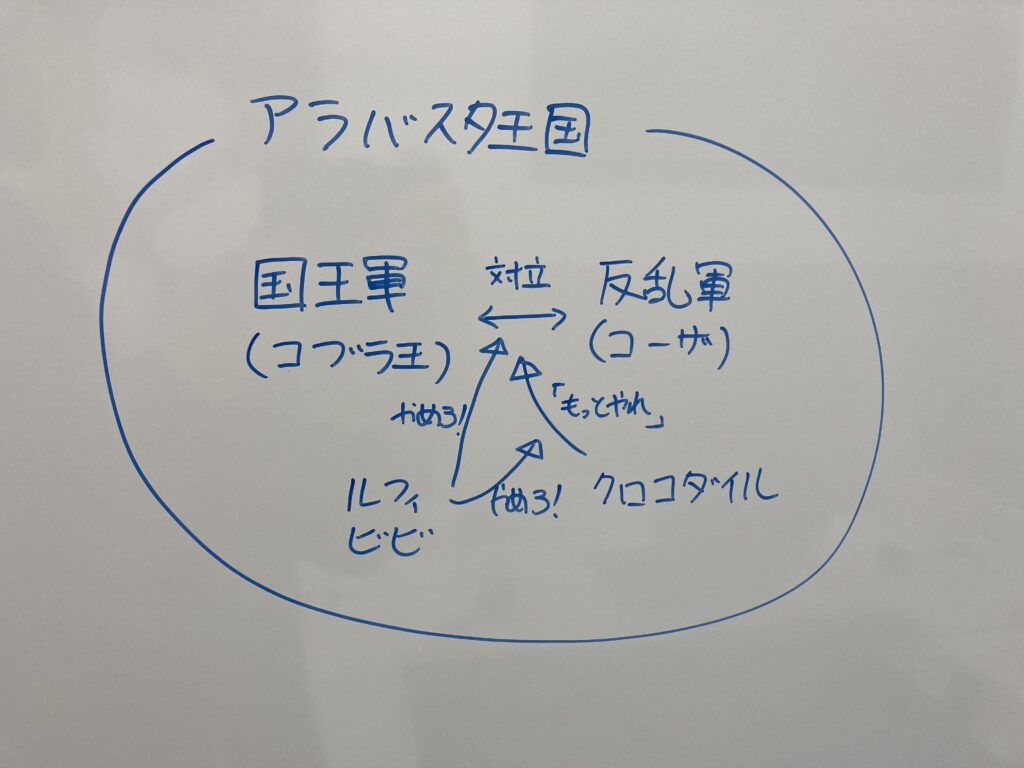 アラバスタ王国
国王軍
対立
反乱軍
(コブラ王)
(コーザ)
やめろ!
「もっとやれ」
ルフィ
ビビ
やめろ!
クロコダイル